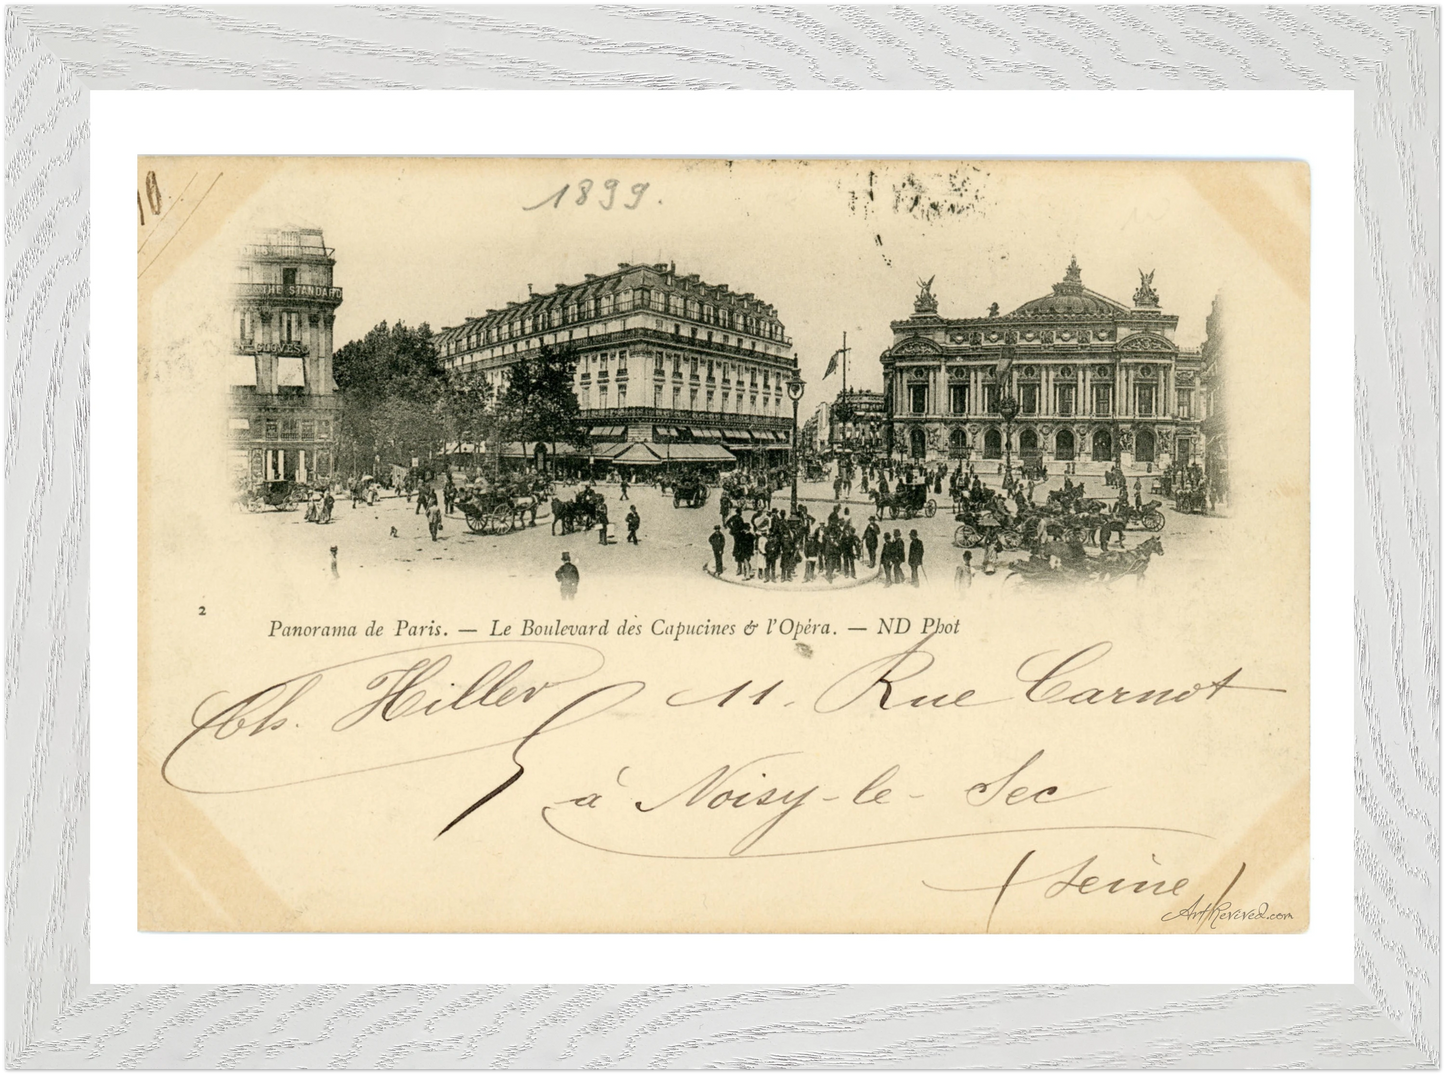 10.
1899.
THE STANDARD
2
Panorama de Paris. — Le Boulevard des Capucines & l'Opéra. — ND Phot
Ch. Hiller 11. Rue Carnot
à Noisy-le-Sec
(Seine)
ArtRevived.com